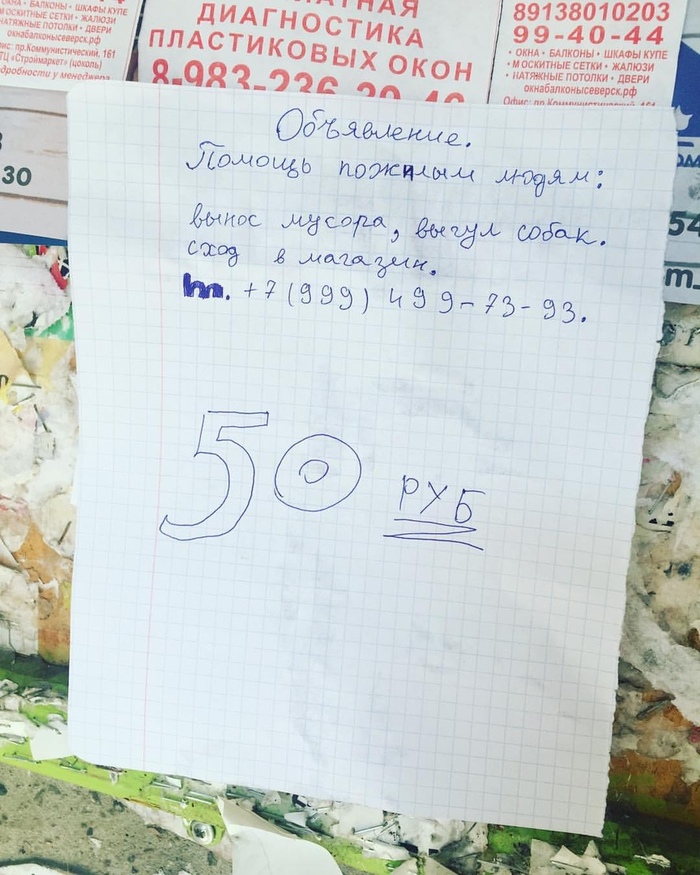 ОКНА • БАЛКОНЫ • ШКАФЫ КУПЕ
МОСКИТНЫЕ СЕТКИ • ЖАЛЮЗИ
НАТЯЖНЫЕ ПОТОЛКИ • ДВЕРИ
окнабалконысеверск.рф
пр.Коммунистический, 161
ТЦ «Строймаркет» (цоколь)
подробности у менеджера
ДИАГНОСТИКА
ПЛАСТИКОВЫХ ОКОН
8-983-236
89138010203
99-40-44
• ОКНА • БАЛКОНЫ • ШКАФЫ КУПЕ
• МОСКИТНЫЕ СЕТКИ • ЖАЛЮЗИ
• НАТЯЖНЫЕ ПОТОЛКИ • ДВЕРИ
окнабалконысеверск.рф
Офис: пр.Коммунистический, 161
30
54
Объявление.
Помощь пожилым людям:
вынос мусора, выгул собак.
сход в магазин.
т. +7 (999) 499-73-93.
50 РУБ